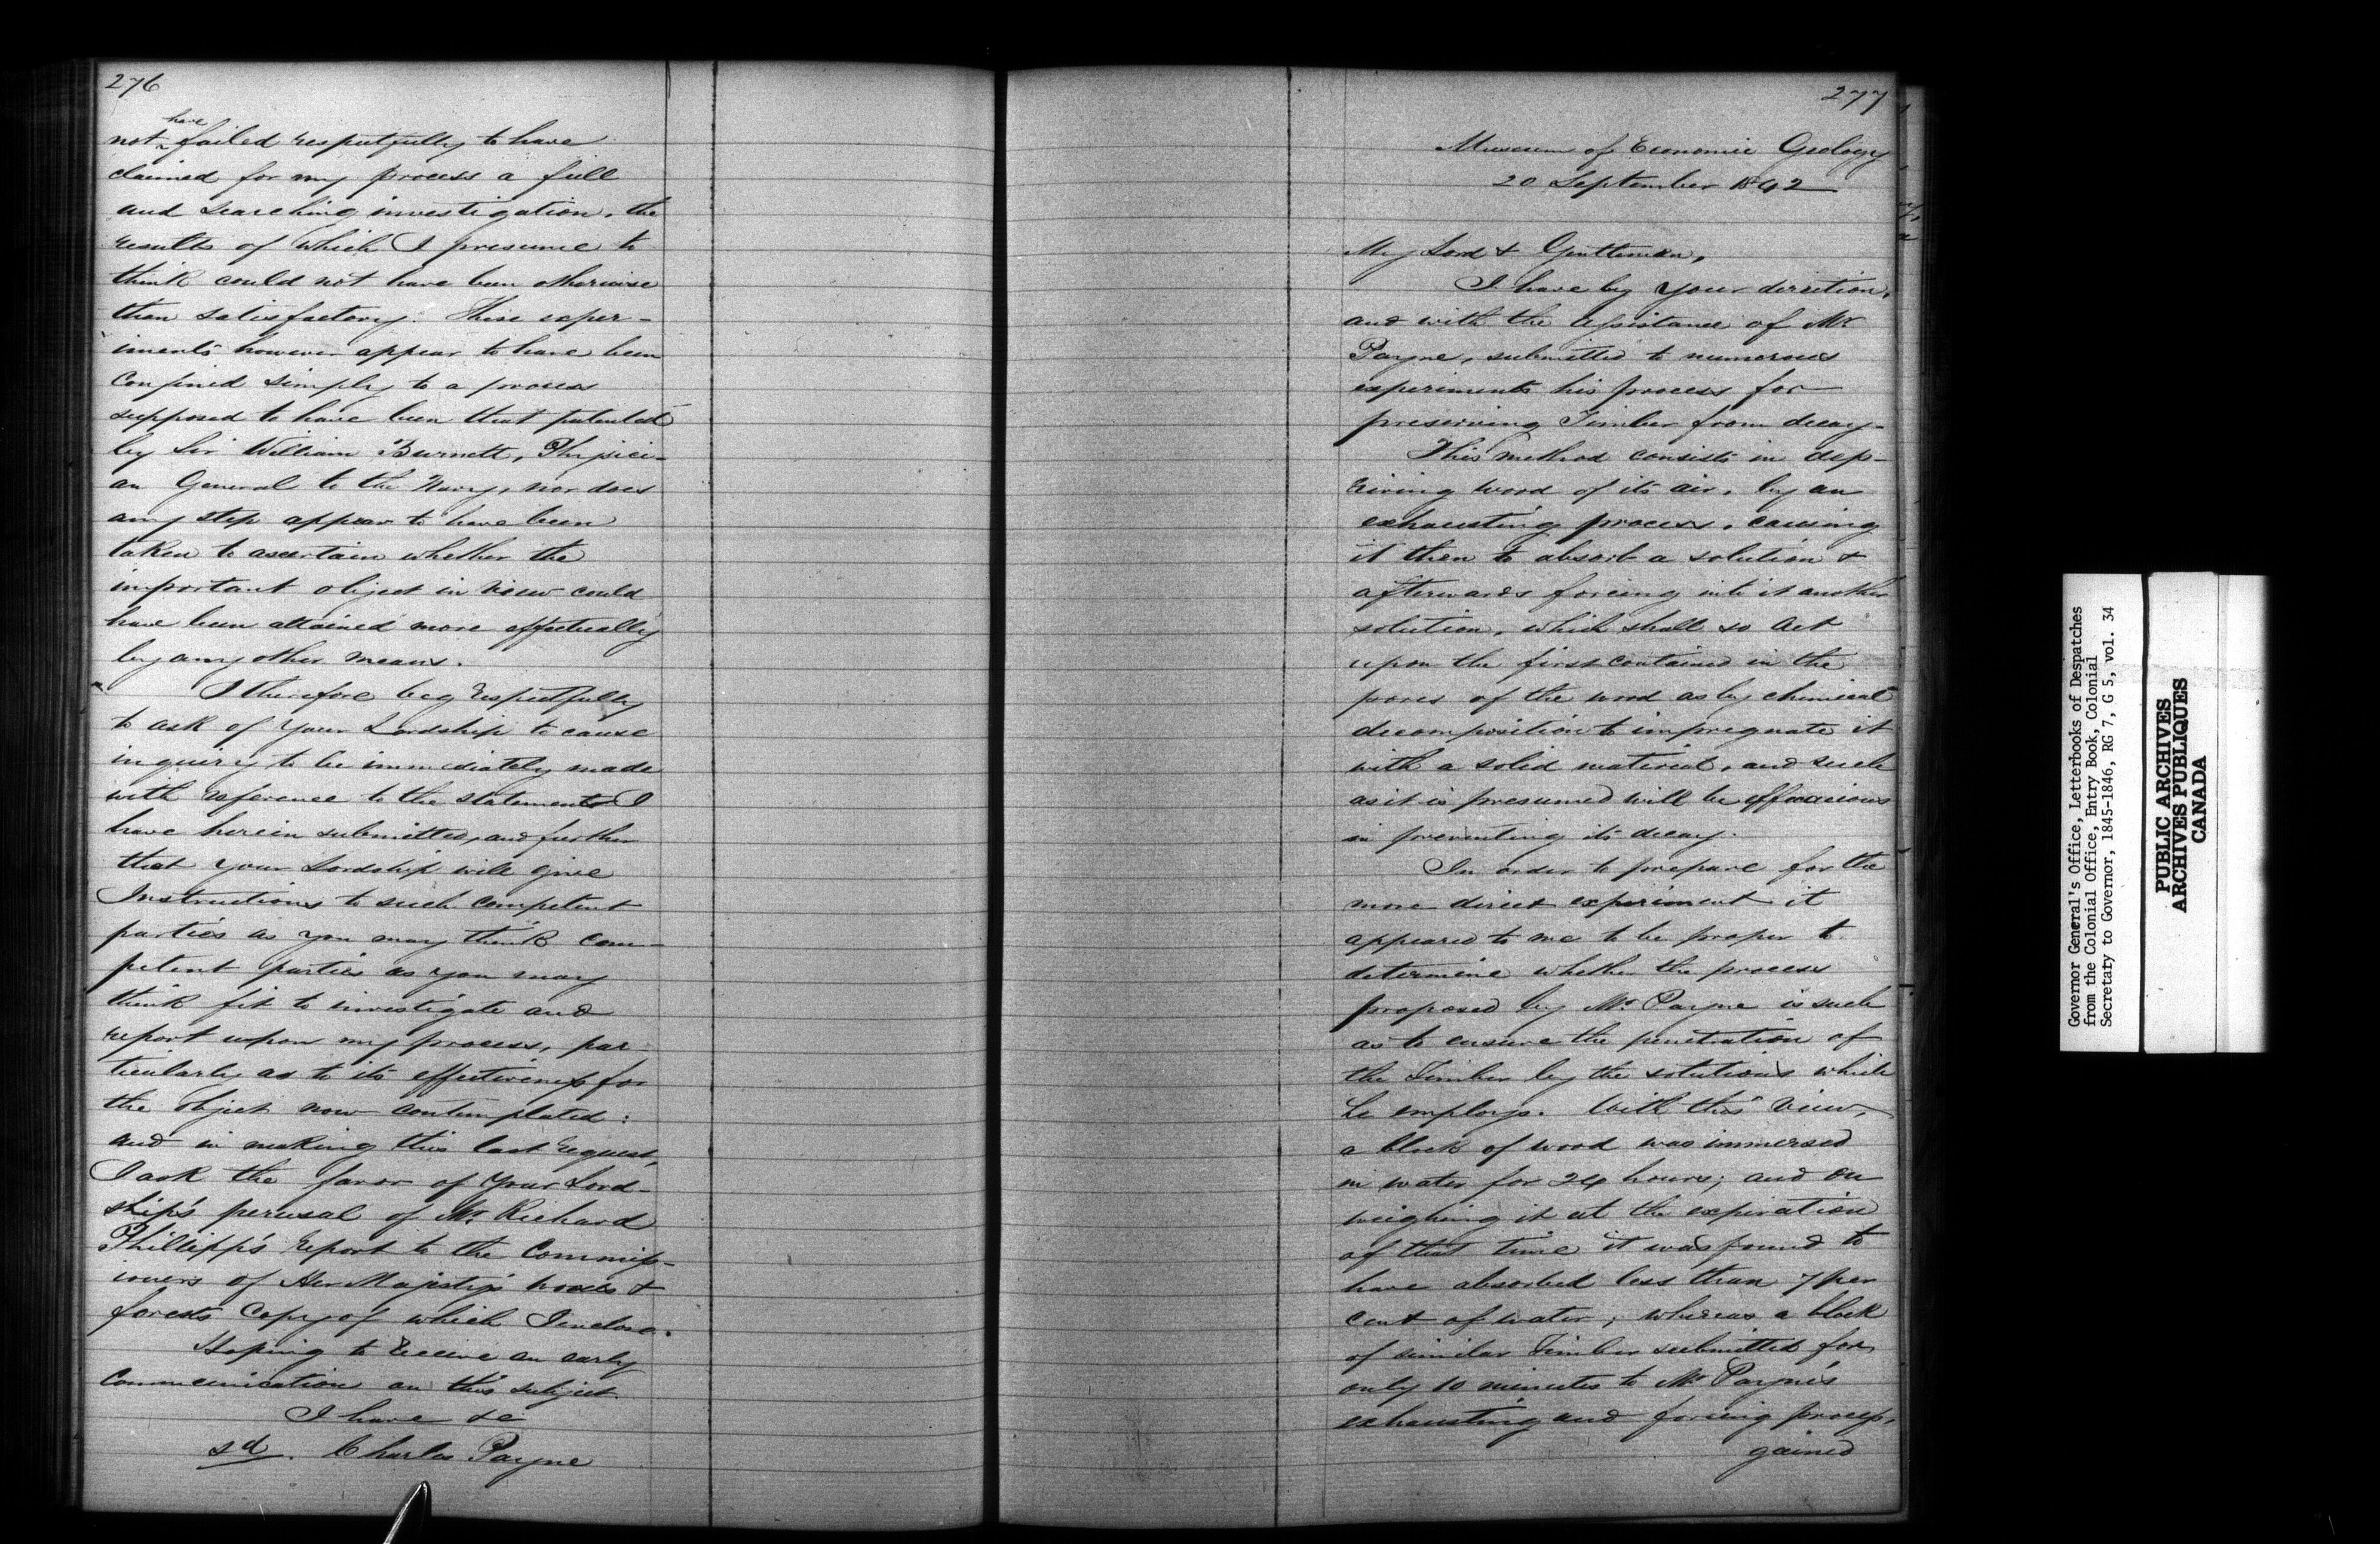 276
have
not ^ failed respectfully to have
claimed for my process a full
and searching investigation, the
results of which I presume to
think could not have been otherwise
than satisfactory. These exper-
iments however appear to have been
confined simply to a process
supposed to have been that patented
by Sir William Burnett, Physici-
an General to the Navy, nor does
any step appear to have been
taken to ascertain whether the
important object in view could
have been attained more effectually
by any other means.
I therefore beg respectfully
to ask of Your Lordship to cause
inquiry to be immediately made
with reference to the statements I
have herein submitted, and further
that your Lordship will give
Instructions to such competent
parties as you may think com-
petent parties as you may
think fit to investigate and
report upon my process, par
ticularly as to its effectiveness for
the object now contemplated:
and in making this last request,
I ask the favor of Your Lord-
ship's perusal of Mr. Richard
Phillipp's report to the Commiss-
ioners of Her Majesty's woods &
forests Copy of which I enclose.
Hoping to receive an early
Communication on this subject
I have &c
sd. Charles Payne
277
Museum of Economic Geology
20 September 1842
My Lord & Gentlemen,
I have by your direction,
and with the assistance of Mr
Payne, submitted to numerous
experiments his process for
preserving Timber from decay-
This method consists in dep-
riving wood of its air, by an
exhausting process, causing
it then to absorb a solution &
afterwards forcing into it another
solution, which shall so act
upon the first contained in the
pores of the wood as by chemical
decomposition to impregnate it
with a solid material, and such
as it is presumed will be efficacious
in preventing its decay.
In order to prepare for the
more direct experiment it
appeared to me to be proper to
determine whether the process
proposed by Mr. Payne is such
as to ensure the penetration of
the Timber by the solutions which
he employs. With this view,
a block of wood was immersed
in water for 24 hours; and on
weighing it at the expiration
of that time it was found to
have absorbed less than 7 per
cent of water; whereas a block
of similar Timber submitted for
only 10 minutes to Mr Payne's
exhausting and forcing process,
gained
Governor General's Office, Letterbooks of Despatches
from the Colonial Office, Entry Book, Colonial
Secretary to Governor, 1845-1846, RG 7, G 5, vol. 34
PUBLIC ARCHIVES
ARCHIVES PUBLIQUES
CANADA